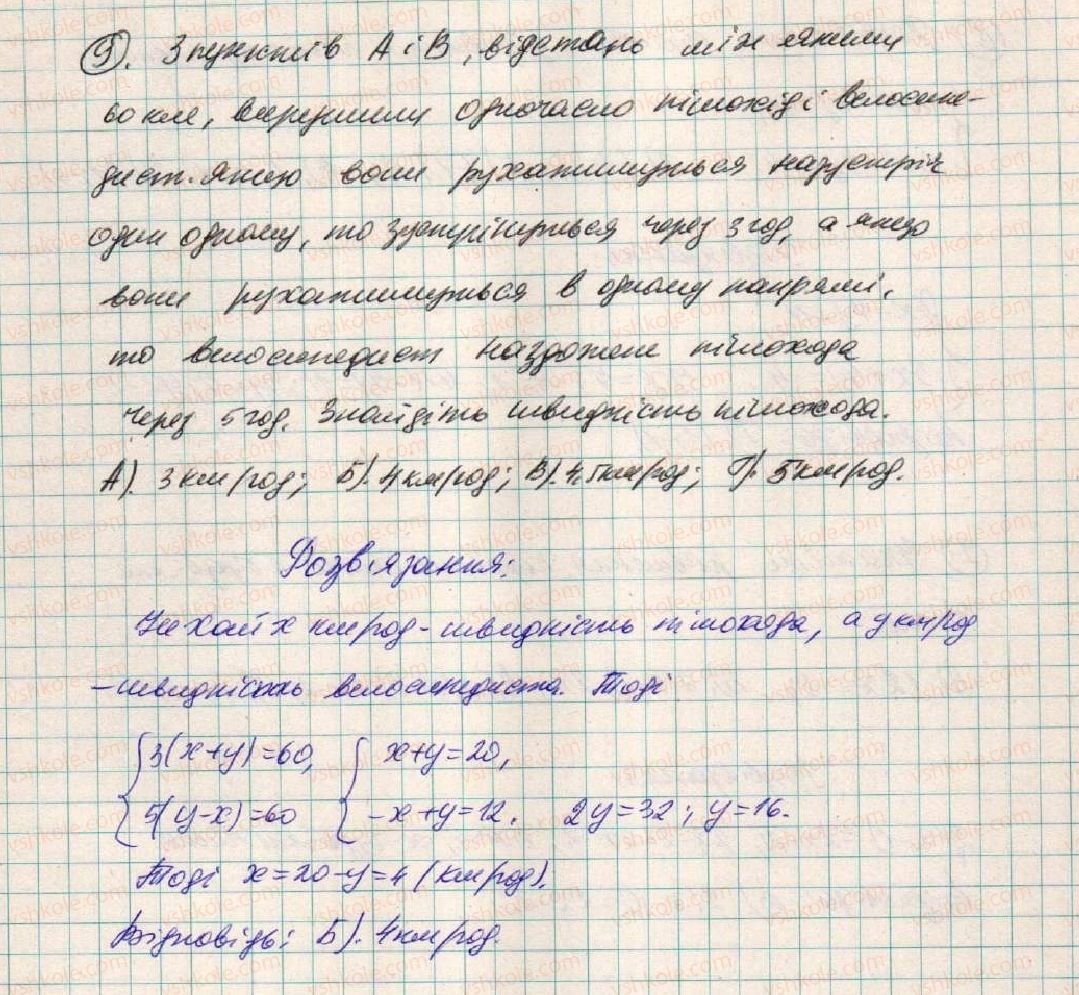 9). З пунктів А і В, відстань між якими
60 км, вирушили одночасно пішохід і велосипе-
дист. Якщо вони рухатимуться назустріч
один одному, то зустрінуться через 3 год, а якщо
вони рухатимуться в одному напрямі,
то велосипедист наздожене пішохода
через 5 год. Знайдіть швидкість пішохода.
А). 3 км/год; Б). 4 км/год; В). 4,5 км/год; Г). 5 км/год.
Розв'язання:
Нехай x км/год - швидкість пішохода, а y км/год
- швидкість велосипедиста. Тоді
{3(x+y)=60, { x+y=20,
5(y-x)=60 -x+y=12. 2y=32; y=16.
Тоді x=20-y=4 (км/год).
Відповідь: Б). 4 км/год.